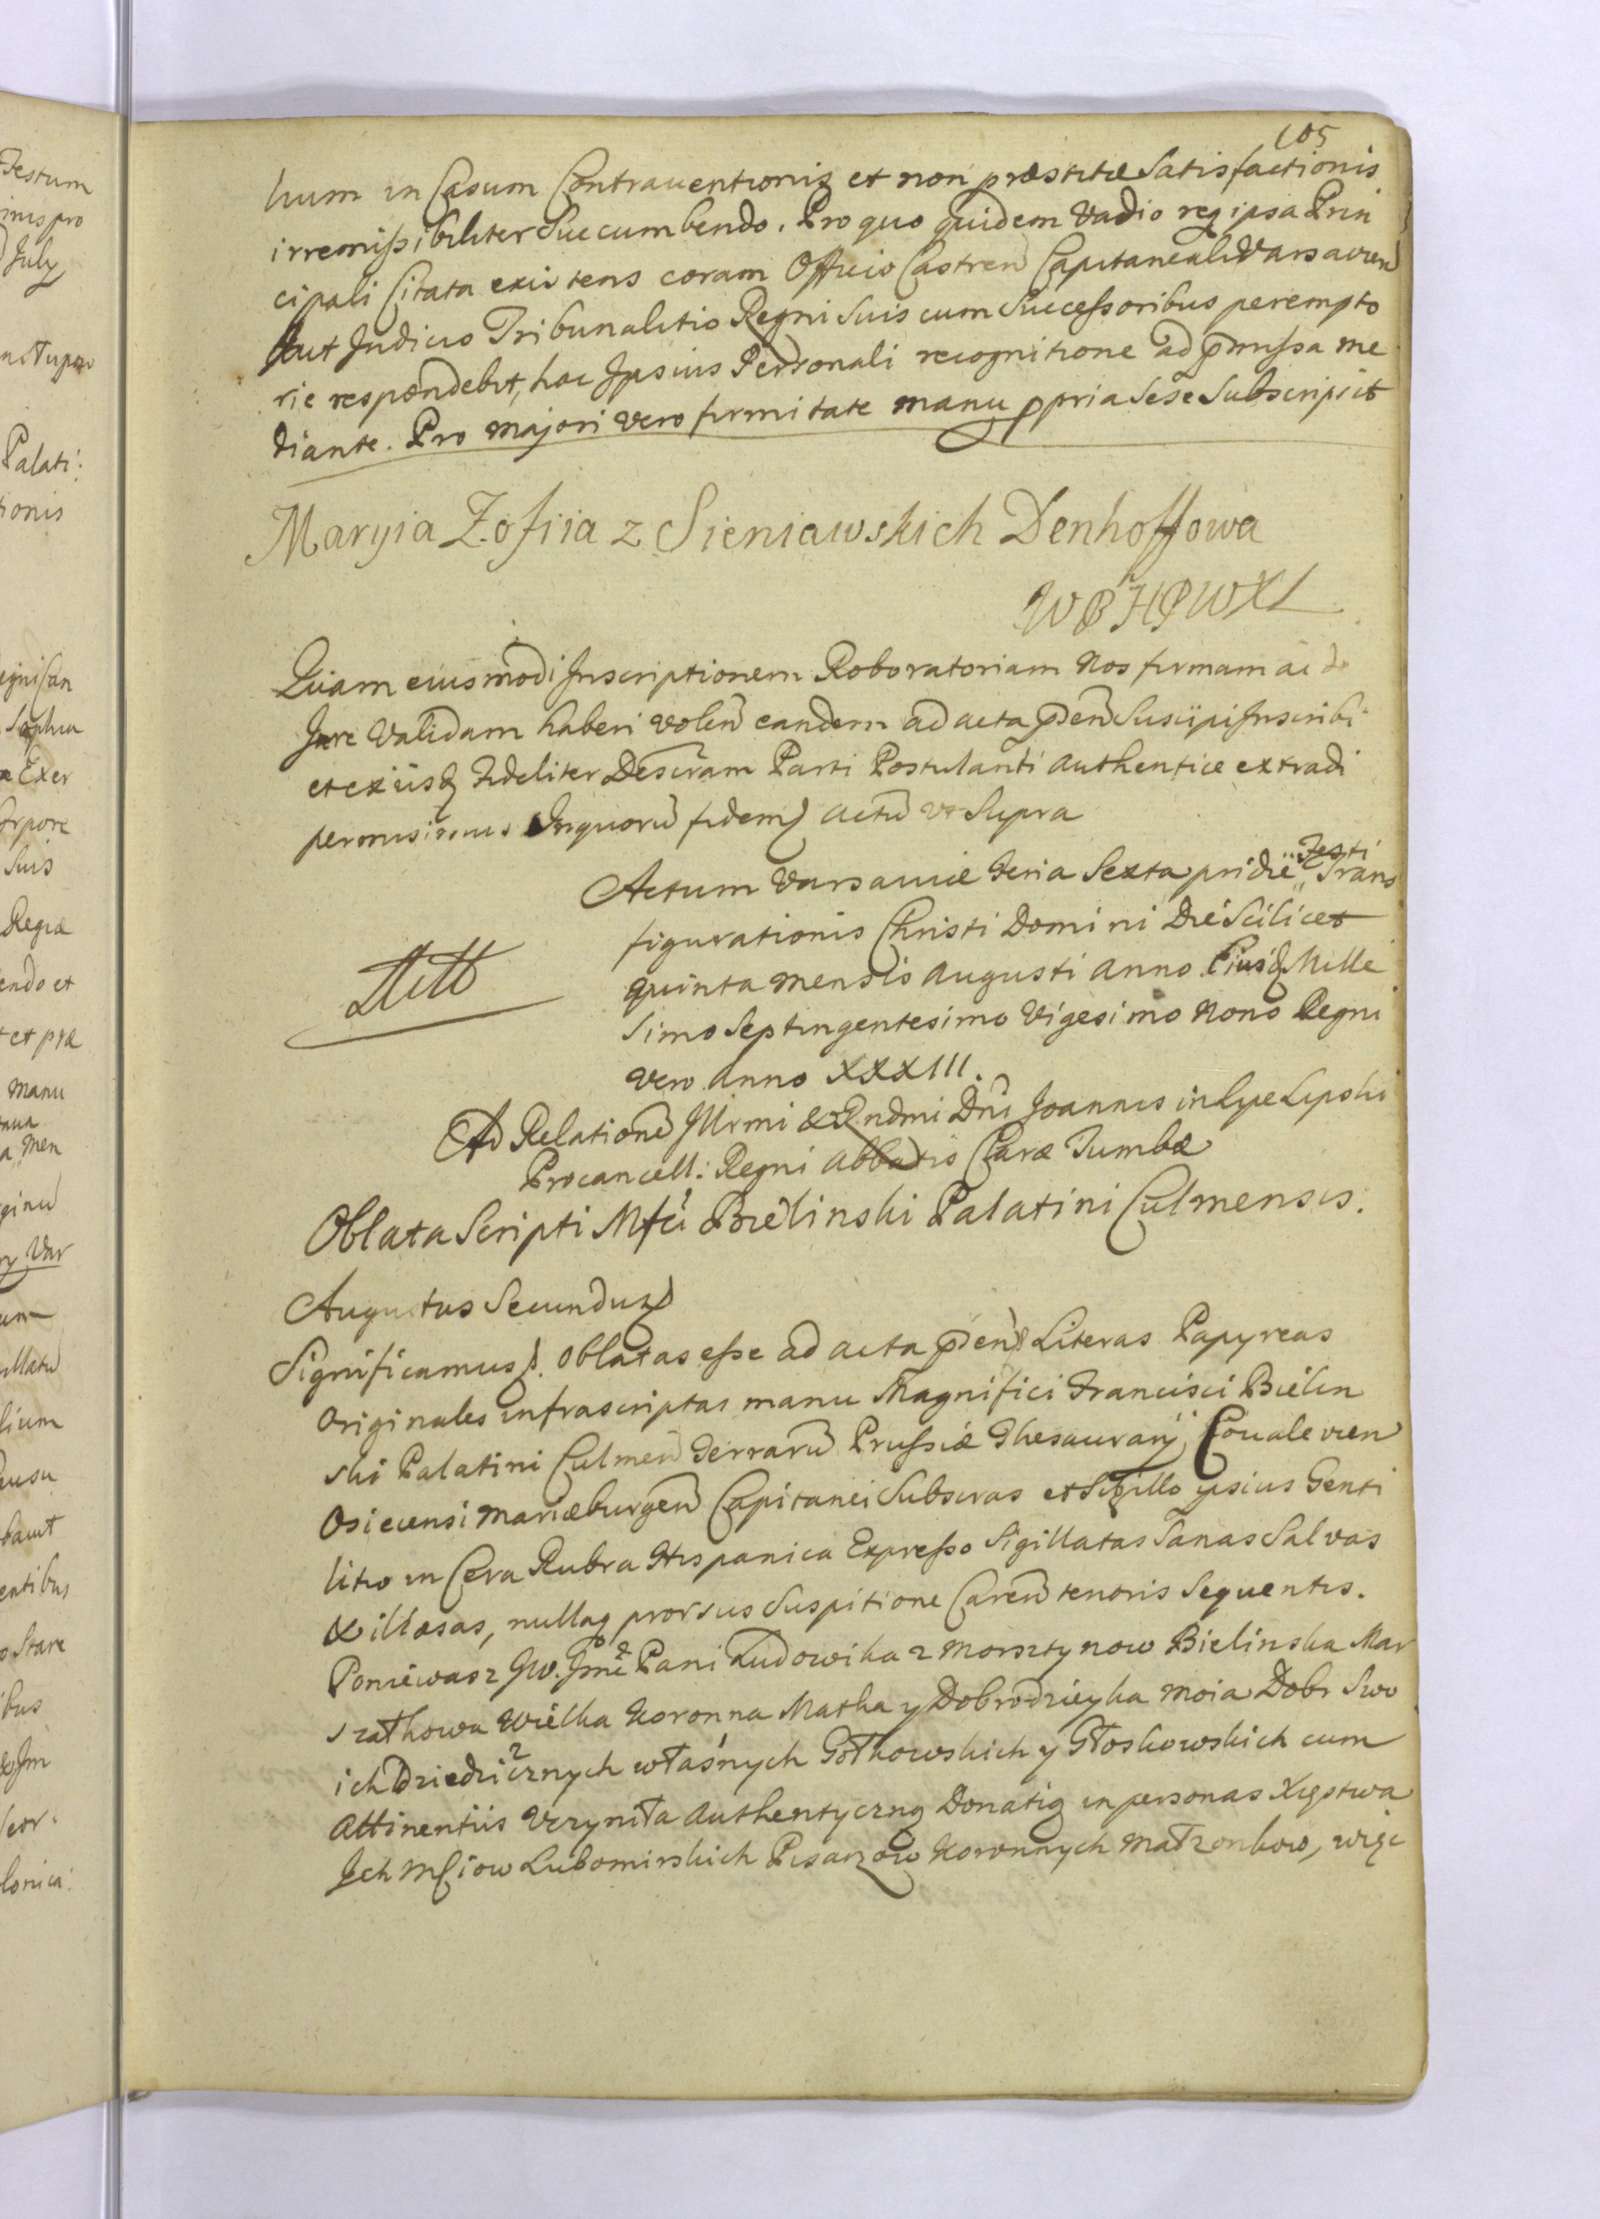 105
hum in Casum Contrauentionis et non præstitæ Satisfactionis
irremissibiliter Succumbendo. Pro quo quidem Vadio re ipsa Prin
cipali Citata existens coram Officio Castren Capitaneali Varsavien
Aut Judicio Tribunalitio Regni Suis cum Successoribus perempto
rie respondebit, hac Ipsius Personali recognitione ad præmissa me
diante. Pro majori vero firmitate manu ppria Sese Subscripsit
Maryia Zofiia z Sieniawskich Denhoffowa
WPHPWXL
Quam eiusmodi Inscriptionem Roboratoriam Nos firmam ac de
Jure Validam haberi volen eandem ad acta pnten Suscipi Inscribi
et ex iisq fideliter Descram Parti Postulanti authentice extradi
permisimus In quoru fidem actu vt Supra
Actum Varsaviæ Feria Sexta pridie Festi Trans
figurationis Christi Domini Die Scilicet
quinta mensis Augusti Anno Eiusq Mille
simo Septingentesimo Vigesimo Nono Regni
vero Anno XXXIII.
Ad Relatione Illrmi & Rndmi Dni Joannis in Lipe Lipski
Procancell: Regni Abbatis Claræ Tumbæ
Oblata Scripti Mfci Bielinski Palatini Culmensis.
Augustus Secundus
Significamus. Oblatas esse ad acta pnten Literas Papyreas
Originales infrascriptas manu Magnifici Francisci Bielin
ski Palatini Culmen Terraru Prussiæ Thesaurarij Covalevien
Osiecensi Mariæburgen Capitanei Subscras et Sigillo ipsius Genti
litio in Cera Rubra Hispanica Expresso Sigillatas Sanas Salvas
& illæsas, nullaq prorsus Suspitione Caren tenoris Sequentis.
Poniewasz JW. Jmć Pani Ludowika z Morsztynow Bielinska Mar
szałkowa Wielka Koronna Matka y Dobrodzieyka moia Dobr Swo
ich Dziedzicznych własnych Gołkowskich y Głoskowskich cum
Attinentiis Vczyniła Authentyczną Donatią in personas Xięstwa
Ich Mściow Lubomirskich Pisarzow Koronnych Małzonkow, więc